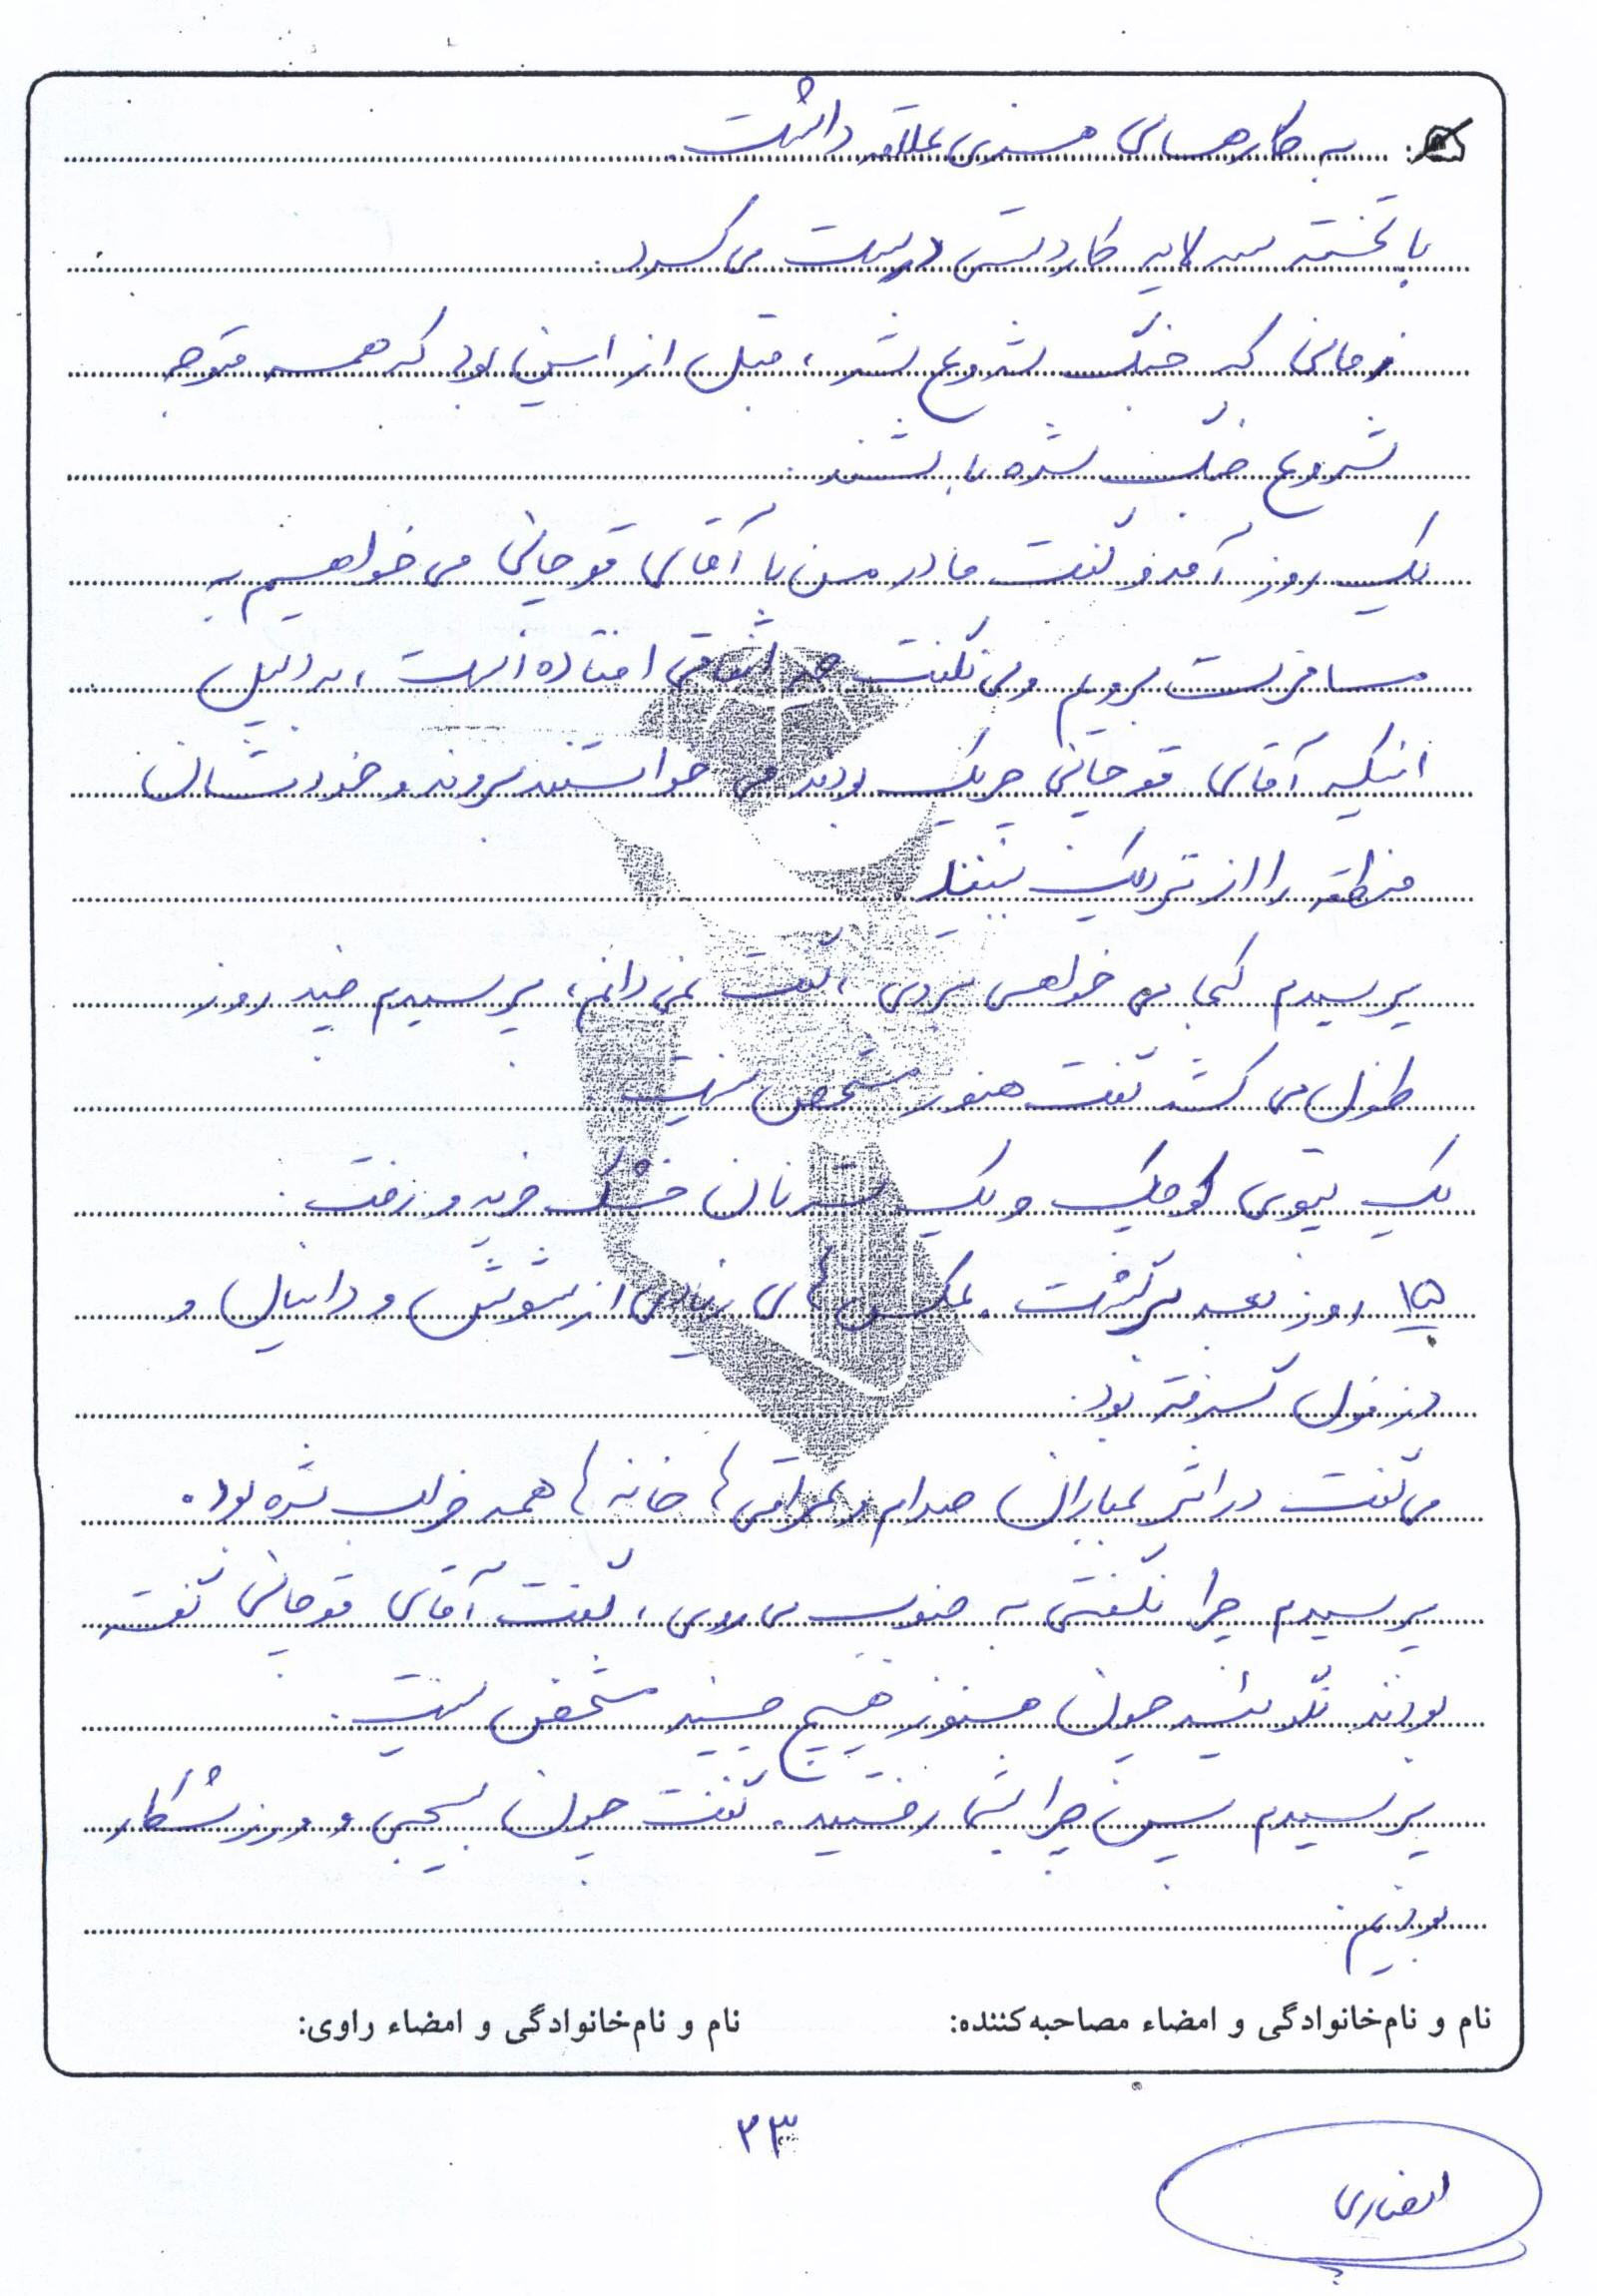 به کارهای هنری علاقه داشت.
با تخته سه لایه کاردستی درست می کرد.
زمانی که جنگ شروع شد، قبل از این بود که همه متوجه
شروع جنگ شده باشند.
یک روز آمد و گفت مادر من با آقای قوچانی می خواهیم به
مسافرت برویم ولی نگفت چه اتفاقی افتاده است، به دلیل
اینکه آقای قوچانی چریک بودند می خواستند بروند و خودشان
منطقه را از نزدیک ببینند
پرسیدم کجا می خواهی بروی، گفت نمی دانم، پرسیدم چند روز
طول می کشد گفت هنوز مشخص نیست
یک پتوی کوچک و یک نان خشک خرید و رفت.
۱۵ روز بعد برگشت. عکس های زیادی از شوش و دانیال و
دزفول گرفته بود.
می گفت در اثر بمباران صدام و عراقی ها خانه ها همه خراب شده بود.
پرسیدم چرا نگفتی به جنوب می روی، گفت آقای قوچانی گفته
بودند نگوئید چون هنوز هیچ چیز مشخص نیست.
پرسیدم پس چرا شما رفتید. گفت چون بسیجی و ورزشکار
بودیم.
نام و نام‌خانوادگی و امضاء مصاحبه‌کننده: نام و نام‌خانوادگی و امضاء راوی:
۲۳
انصاری